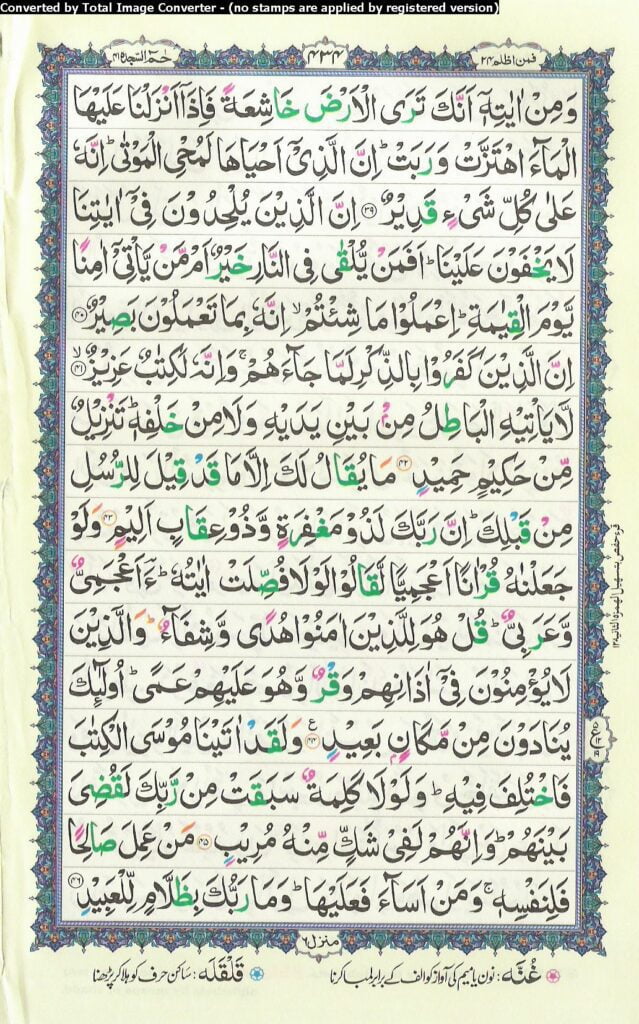 Converted by Total Image Converter - (no stamps are applied by registered version)
حٰمٓ السجدة ٤١
٤٣٤
فمن اظلم ٢٤
وَمِنْ اٰيٰتِهٖۤ اَنَّكَ تَرَى الْاَرْضَ خَاشِعَةً فَاِذَاۤ اَنْزَلْنَا عَلَيْهَا
الْمَآءَ اهْتَزَّتْ وَرَبَتْ ؕ اِنَّ الَّذِيْۤ اَحْيَاهَا لَمُحْيِ الْمَوْتٰى ؕ اِنَّهٗ
عَلٰى كُلِّ شَيْءٍ قَدِيْرٌ ﴿٣٩﴾ اِنَّ الَّذِيْنَ يُلْحِدُوْنَ فِيْۤ اٰيٰتِنَا
لَا يَخْفَوْنَ عَلَيْنَا ؕ اَفَمَنْ يُّلْقٰى فِي النَّارِ خَيْرٌ اَمْ مَّنْ يَّاْتِيْۤ اٰمِنًا
يَّوْمَ الْقِيٰمَةِ ؕ اِعْمَلُوْا مَا شِئْتُمْ ۙ اِنَّهٗ بِمَا تَعْمَلُوْنَ بَصِيْرٌ ﴿٤٠﴾
اِنَّ الَّذِيْنَ كَفَرُوْا بِالذِّكْرِ لَمَّا جَآءَهُمْ ۚ وَاِنَّهٗ لَكِتٰبٌ عَزِيْزٌ ﴿٤١﴾ ۙ
لَّا يَاْتِيْهِ الْبَاطِلُ مِنْۢ بَيْنِ يَدَيْهِ وَلَا مِنْ خَلْفِهٖ ؕ تَنْزِيْلٌ
مِّنْ حَكِيْمٍ حَمِيْدٍ ﴿٤٢﴾ مَا يُقَالُ لَكَ اِلَّا مَا قَدْ قِيْلَ لِلرُّسُلِ
مِنْ قَبْلِكَ ؕ اِنَّ رَبَّكَ لَذُوْ مَغْفِرَةٍ وَّذُوْ عِقَابٍ اَلِيْمٍ ﴿٤٣﴾ وَلَوْ
جَعَلْنٰهُ قُرْاٰنًا اَعْجَمِيًّا لَّقَالُوْا لَوْلَا فُصِّلَتْ اٰيٰتُهٗ ؕ ءَؔاَعْجَمِيٌّ
وَّعَرَبِيٌّ ؕ قُلْ هُوَ لِلَّذِيْنَ اٰمَنُوْا هُدًى وَّشِفَآءٌ ؕ وَالَّذِيْنَ
لَا يُؤْمِنُوْنَ فِيْۤ اٰذَانِهِمْ وَقْرٌ وَّهُوَ عَلَيْهِمْ عَمًى ؕ اُولٰٓئِكَ
يُنَادَوْنَ مِنْ مَّكَانٍۭ بَعِيْدٍ ﴿٤٤﴾ ع وَلَقَدْ اٰتَيْنَا مُوْسَى الْكِتٰبَ
فَاخْتُلِفَ فِيْهِ ؕ وَلَوْلَا كَلِمَةٌ سَبَقَتْ مِنْ رَّبِّكَ لَقُضِيَ
بَيْنَهُمْ ؕ وَاِنَّهُمْ لَفِيْ شَكٍّ مِّنْهُ مُرِيْبٍ ﴿٤٥﴾ مَنْ عَمِلَ صَالِحًا
فَلِنَفْسِهٖ ۚ وَمَنْ اَسَآءَ فَعَلَيْهَا ؕ وَمَا رَبُّكَ بِظَلَّامٍ لِّلْعَبِيْدِ ﴿٤٦﴾
منزل ٦
غُنَّه: نون یا میم کی آواز کو الف کے برابر لمبا کرنا قَلْقَلَه: ساکن حرف کو ہلا کر پڑھنا